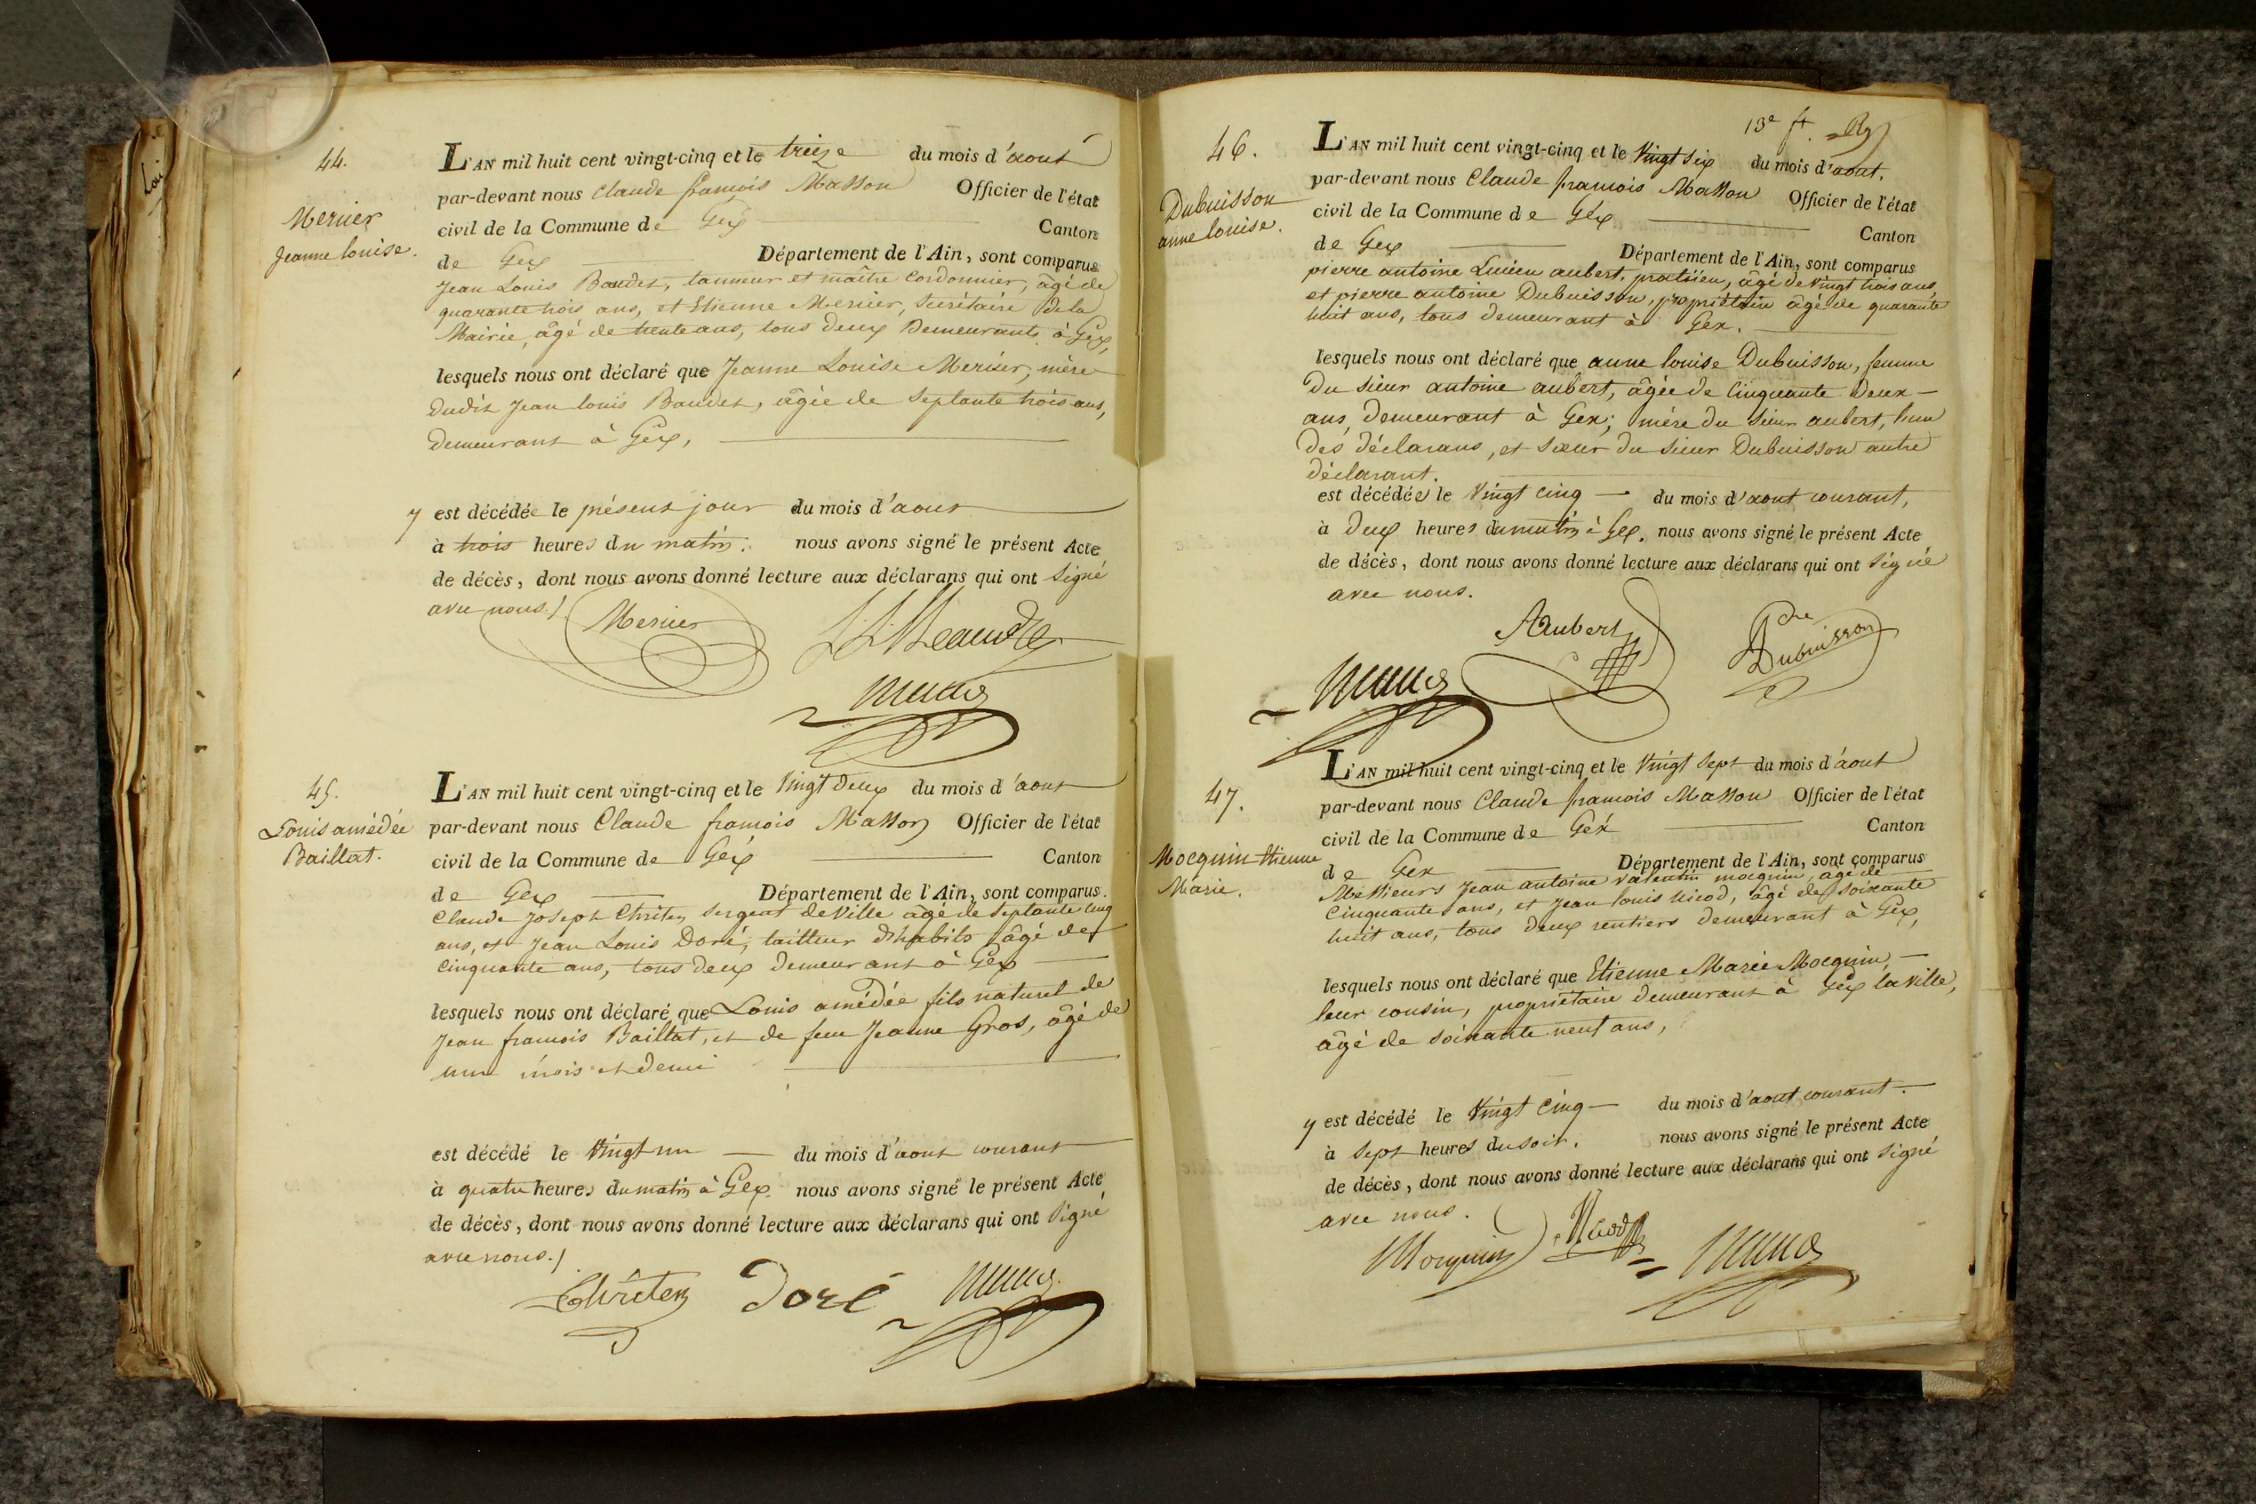 44.
Mernier
Jeanne louise.
L'AN mil huit cent vingt-cinq et le treize du mois d'aout
par-devant nous Claude françois Masson Officier de l'état
civil de la Commune de Gex Canton
de Gex Département de l'Ain, sont comparus
Jean Louis Baudet, tanneur et maître Cordonnier, âgé de
quarante trois ans, et Etienne Mernier, secrétaire de la
Mairie, âgé de trente ans, tous deux Demeurants à Gex,
lesquels nous ont déclaré que Jeanne Louise Mernier, mère
dudit Jean louis Baudet, âgée de septante trois ans,
demeurant à Gex,
y est décédée le présent jour du mois d'aout
à trois heures du matin. nous avons signé le présent Acte
de décès, dont nous avons donné lecture aux déclarans qui ont signé
avec nous./
Mernier
45.
Louis amédée
Baillat.
L'AN mil huit cent vingt-cinq et le Vingt deux du mois d'aout
par-devant nous Claude françois Masson Officier de l'état
civil de la Commune de Gex Canton
de Gex Département de l'Ain, sont comparus.
Claude Joseph Chriten sergent de Ville âgé de septante cinq
ans, et Jean Louis Doré, tailleur d'habits âgé de
cinquante ans, tous deux demeurant à Gex
lesquels nous ont déclaré que Louis amédée fils naturel de
Jean françois Baillat, et de feue Jeanne Gros, âgé de
un mois et demi
est décédé le Vingt un du mois d'aout courant
à quatre heures du matin à Gex. nous avons signé le présent Acte
de décès, dont nous avons donné lecture aux déclarans qui ont signé
avec nous./
Chriten Doré
13e ft.
46.
Dubuisson
anne louise.
L'AN mil huit cent vingt-cinq et le Vingt six du mois d'aout.
par-devant nous Claude françois Masson Officier de l'état
civil de la Commune de Gex Canton
de Gex Département de l'Ain, sont comparus
pierre antoine Lucien aubert, praticien, âgé de vingt trois ans,
et pierre antoine Dubuisson, propriétaire âgé de quarante
huit ans, tous demeurant à Gex.
lesquels nous ont déclaré que anne louise Dubuisson, femme
du sieur antoine aubert, âgée de Cinquante Deux
ans, demeurant à Gex; mère du sieur aubert, l'un
des déclarans, et sœur du sieur Dubuisson autre
déclarant.
est décédée le Vingt cinq du mois d'aout courant,
à Deux heures du matin à Gex. nous avons signé le présent Acte
de décès, dont nous avons donné lecture aux déclarans qui ont signé
avec nous.
Aubert
Dubuisson
47.
Mocquin Etienne
Marie.
L'AN mil huit cent vingt-cinq et le Vingt sept du mois d'aout
par-devant nous Claude françois Masson Officier de l'état
civil de la Commune de Gex Canton
de Gex Département de l'Ain, sont comparus
Messieurs Jean antoine valentin mocquin, âgé de
Cinquante ans, et Jean louis nicod, âgé de soixante
huit ans, tous deux rentiers demeurant à Gex,
lesquels nous ont déclaré que Etienne Marie Mocquin,
leur cousin, propriétaire demeurant à Gex la ville,
âgé de soixante neuf ans,
y est décédé le Vingt cinq du mois d'aout courant.
à sept heures du soir. nous avons signé le présent Acte
de décès, dont nous avons donné lecture aux déclarans qui ont signé
avec nous.
Mocquin Nicod